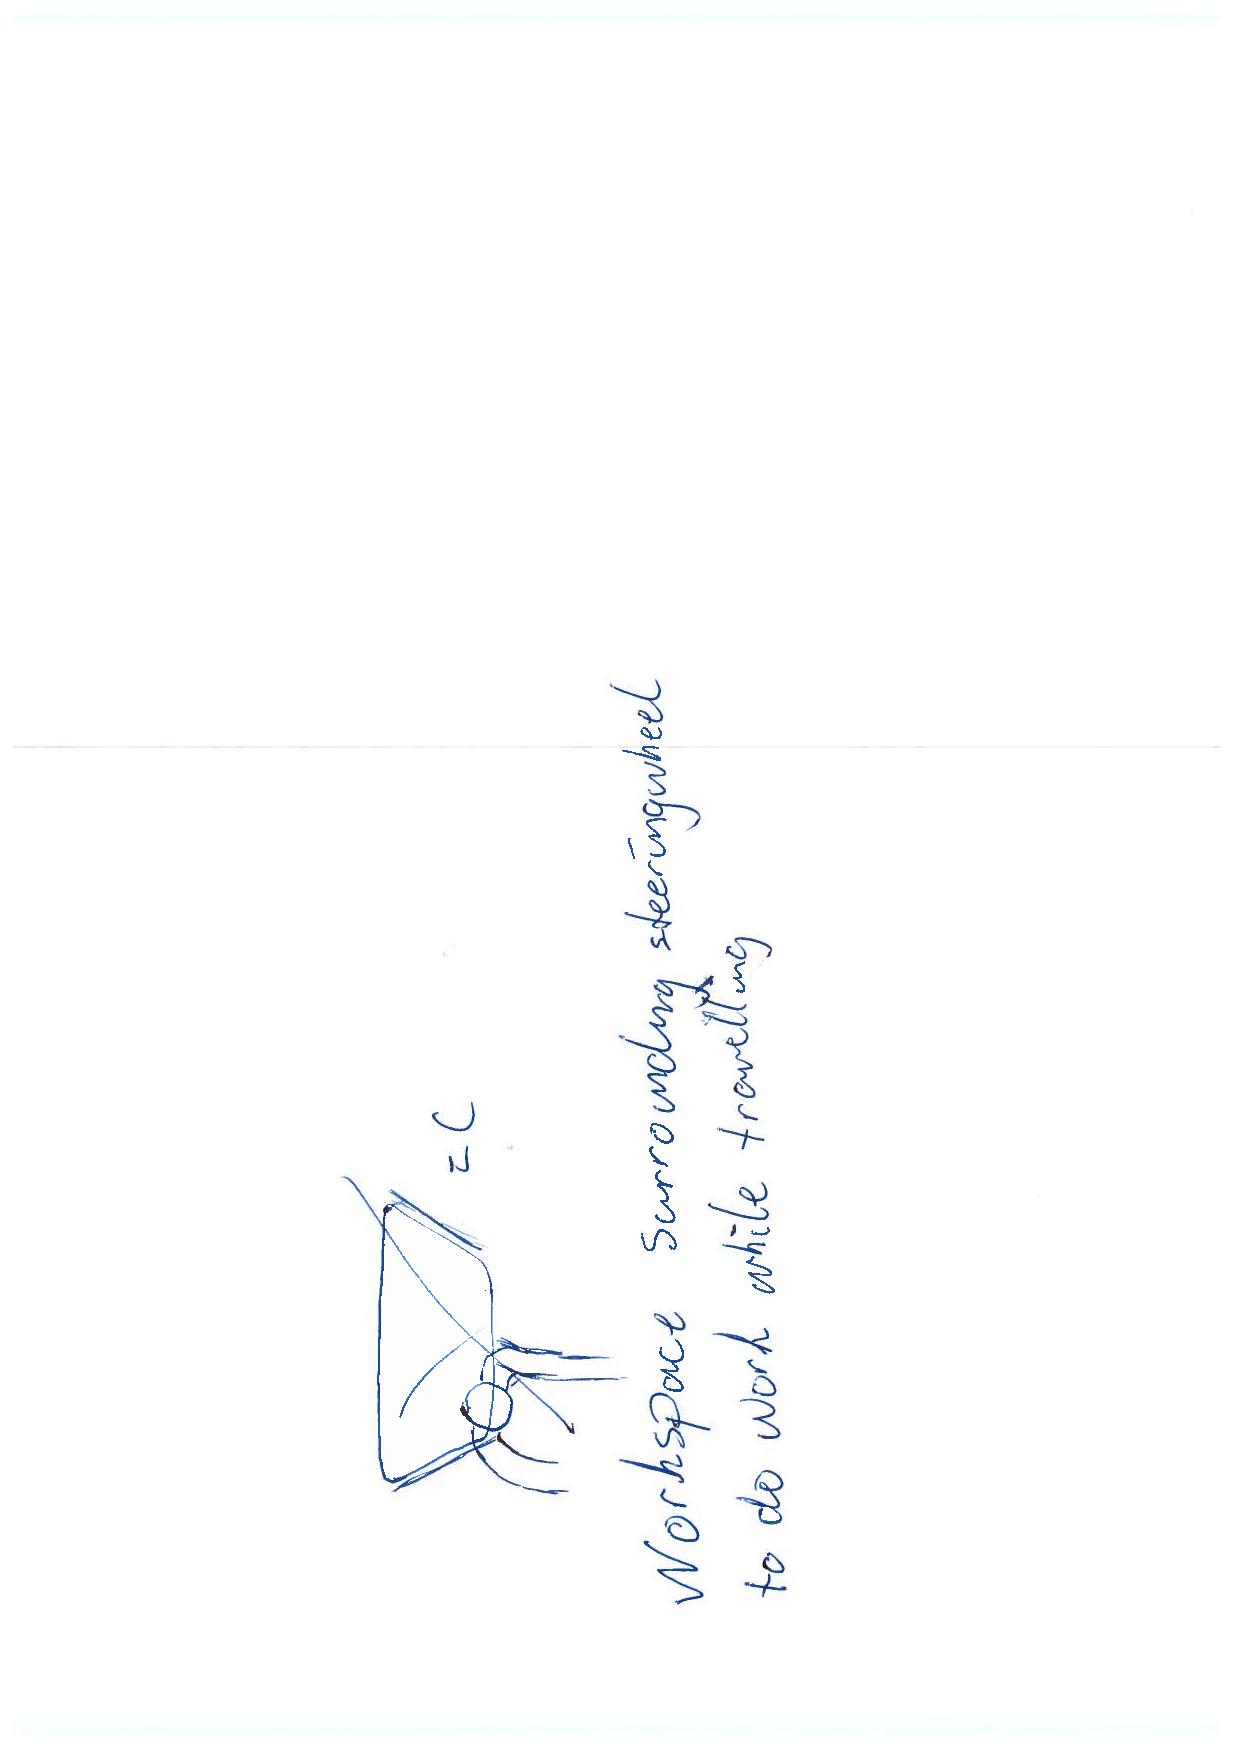 Workspace surrounding steeringwheel
to do work while travelling